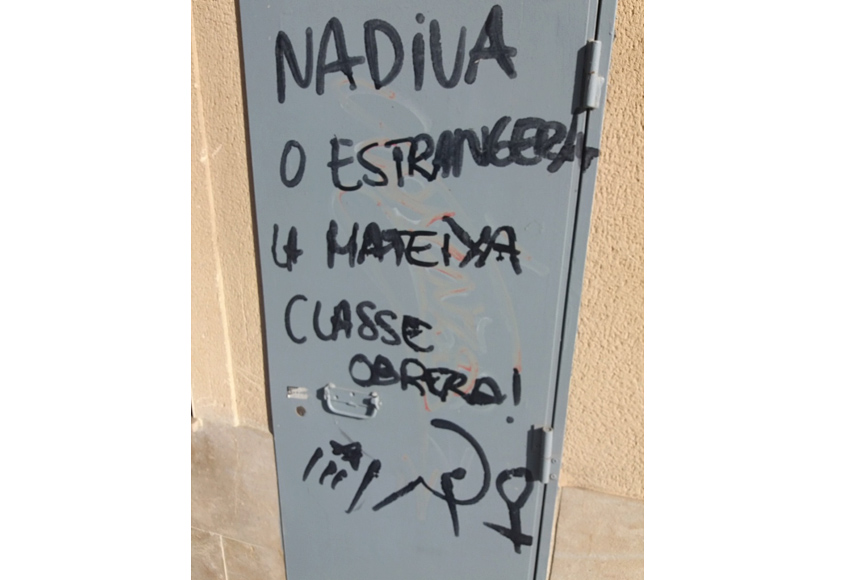 NADIUA
O ESTRANGERA
LA MATEIXA
CLASSE
OBRERA!